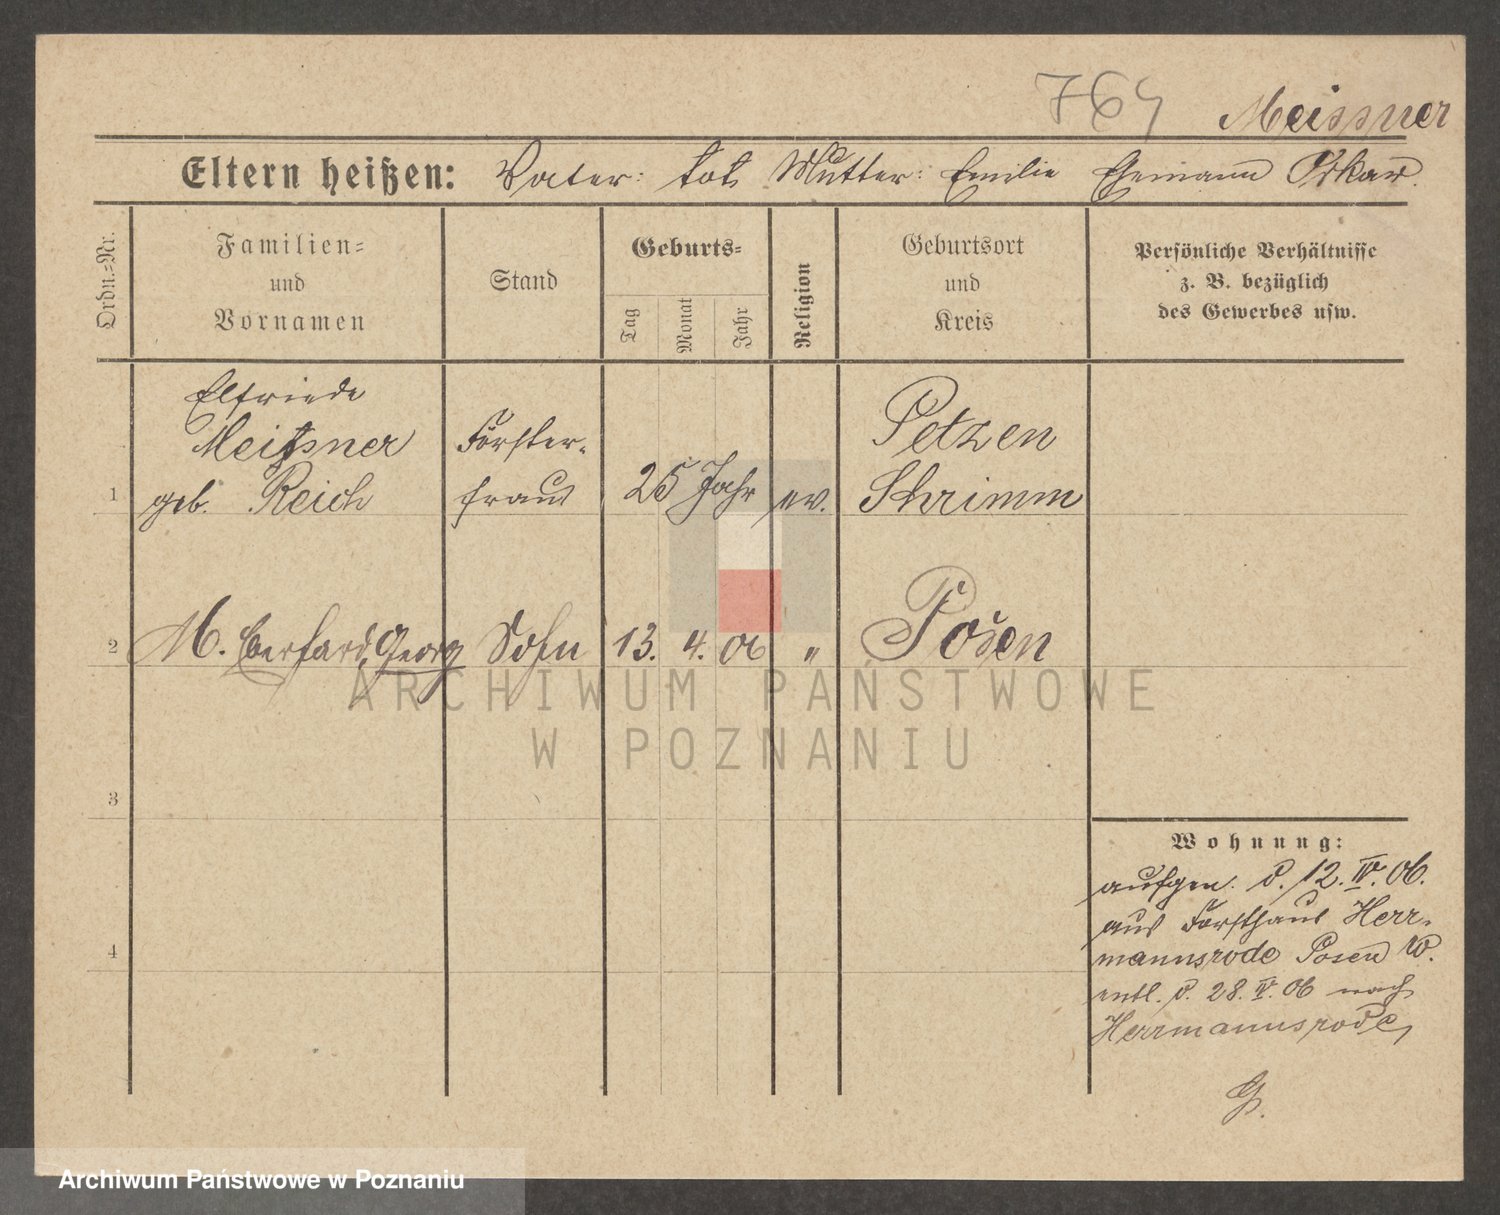 764 Meissner
Eltern heißen: Vater: tot, Mutter: Emilie Ehemann Oskar.
Ordn.-Nr.
Familien-
und
Vornamen
Stand
Geburts-
Tag
Monat
Jahr
Religion
Geburtsort
und
Kreis
Persönliche Verhältnisse
z. B. bezüglich
des Gewerbes usw.
Elfriede
Meißner
geb. Reich
Förster-
frau
25 Jahr
ev.
Petzen
Schrimm
1
2
M. Eberhard, Georg
Sohn
13. 4. 06
"
Posen
3
4
Wohnung:
aufgen. d. 12. IV. 06.
aus Forsthaus Herr-
mannsrode Posen W.
entl. d. 28. IV. 06 nach
Herrmannsrode,
G.
ARCHIWUM PAŃSTWOWE
W POZNANIU
Archiwum Państwowe w Poznaniu